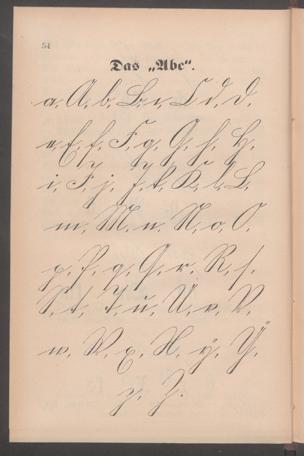 54
Das „Abc“.
a. A. b. B. c. C. d. D.
e. E. f. F. g. G. h. H.
i. I. j. J. k. K. l. L.
m. M. n. N. o. O.
p. P. q. Q. r. R. s.
S. t. T. u. U. v. V.
w. W. x. X. y. Y.
z. Z.